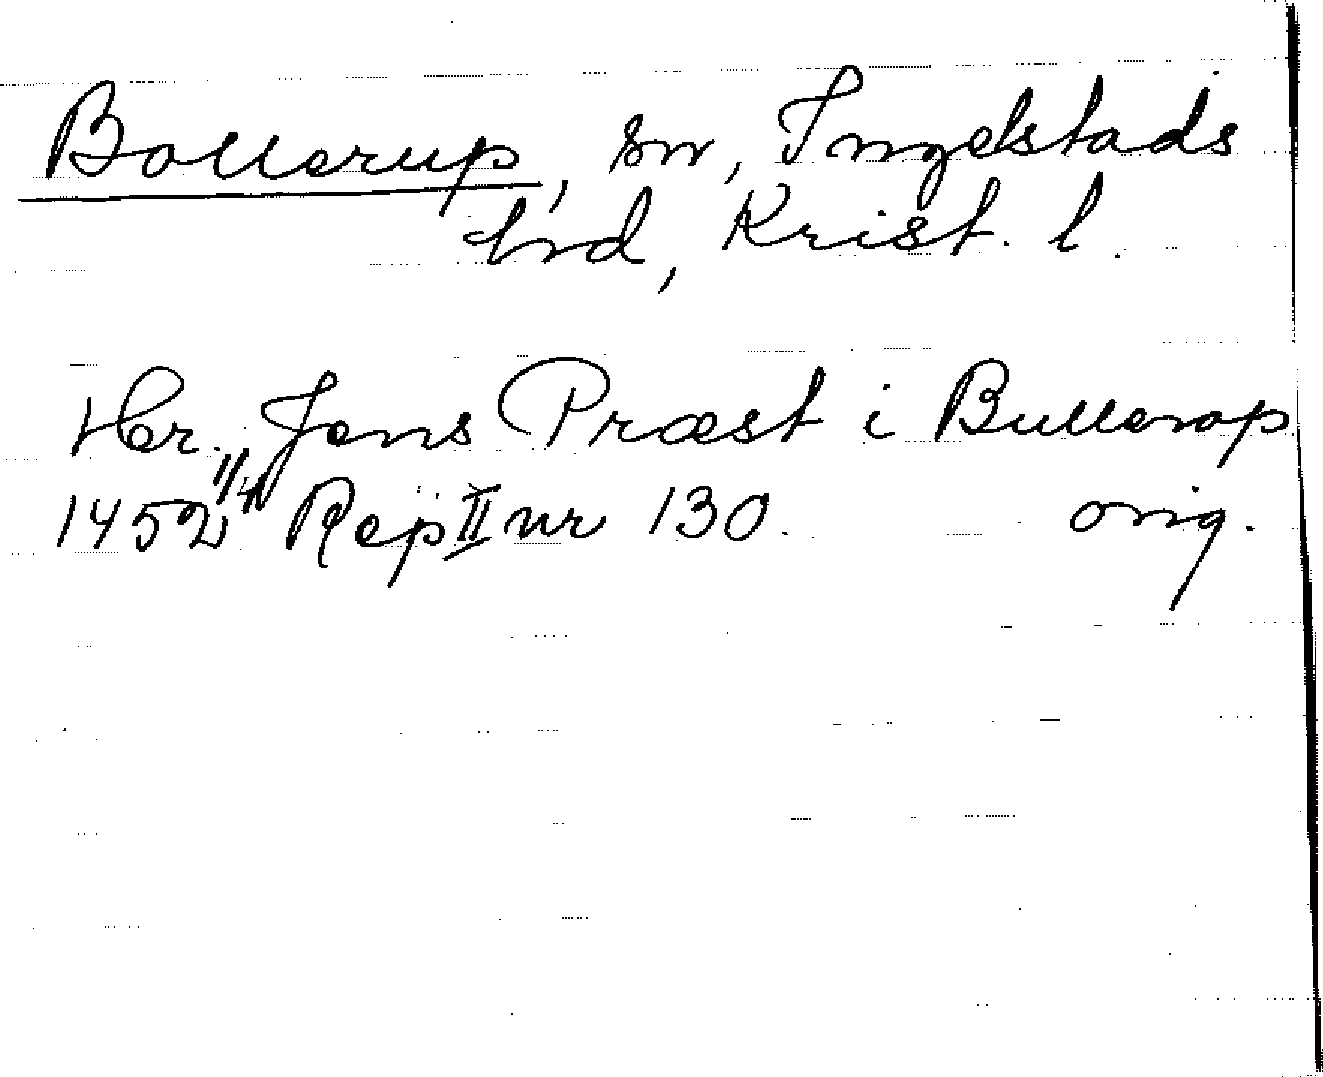 Bollerup, sn, Ingelstads
hrd, Krist. l.
Her Jens Præst i Bullerop
1452 11/4 Rep II nr 130. orig.